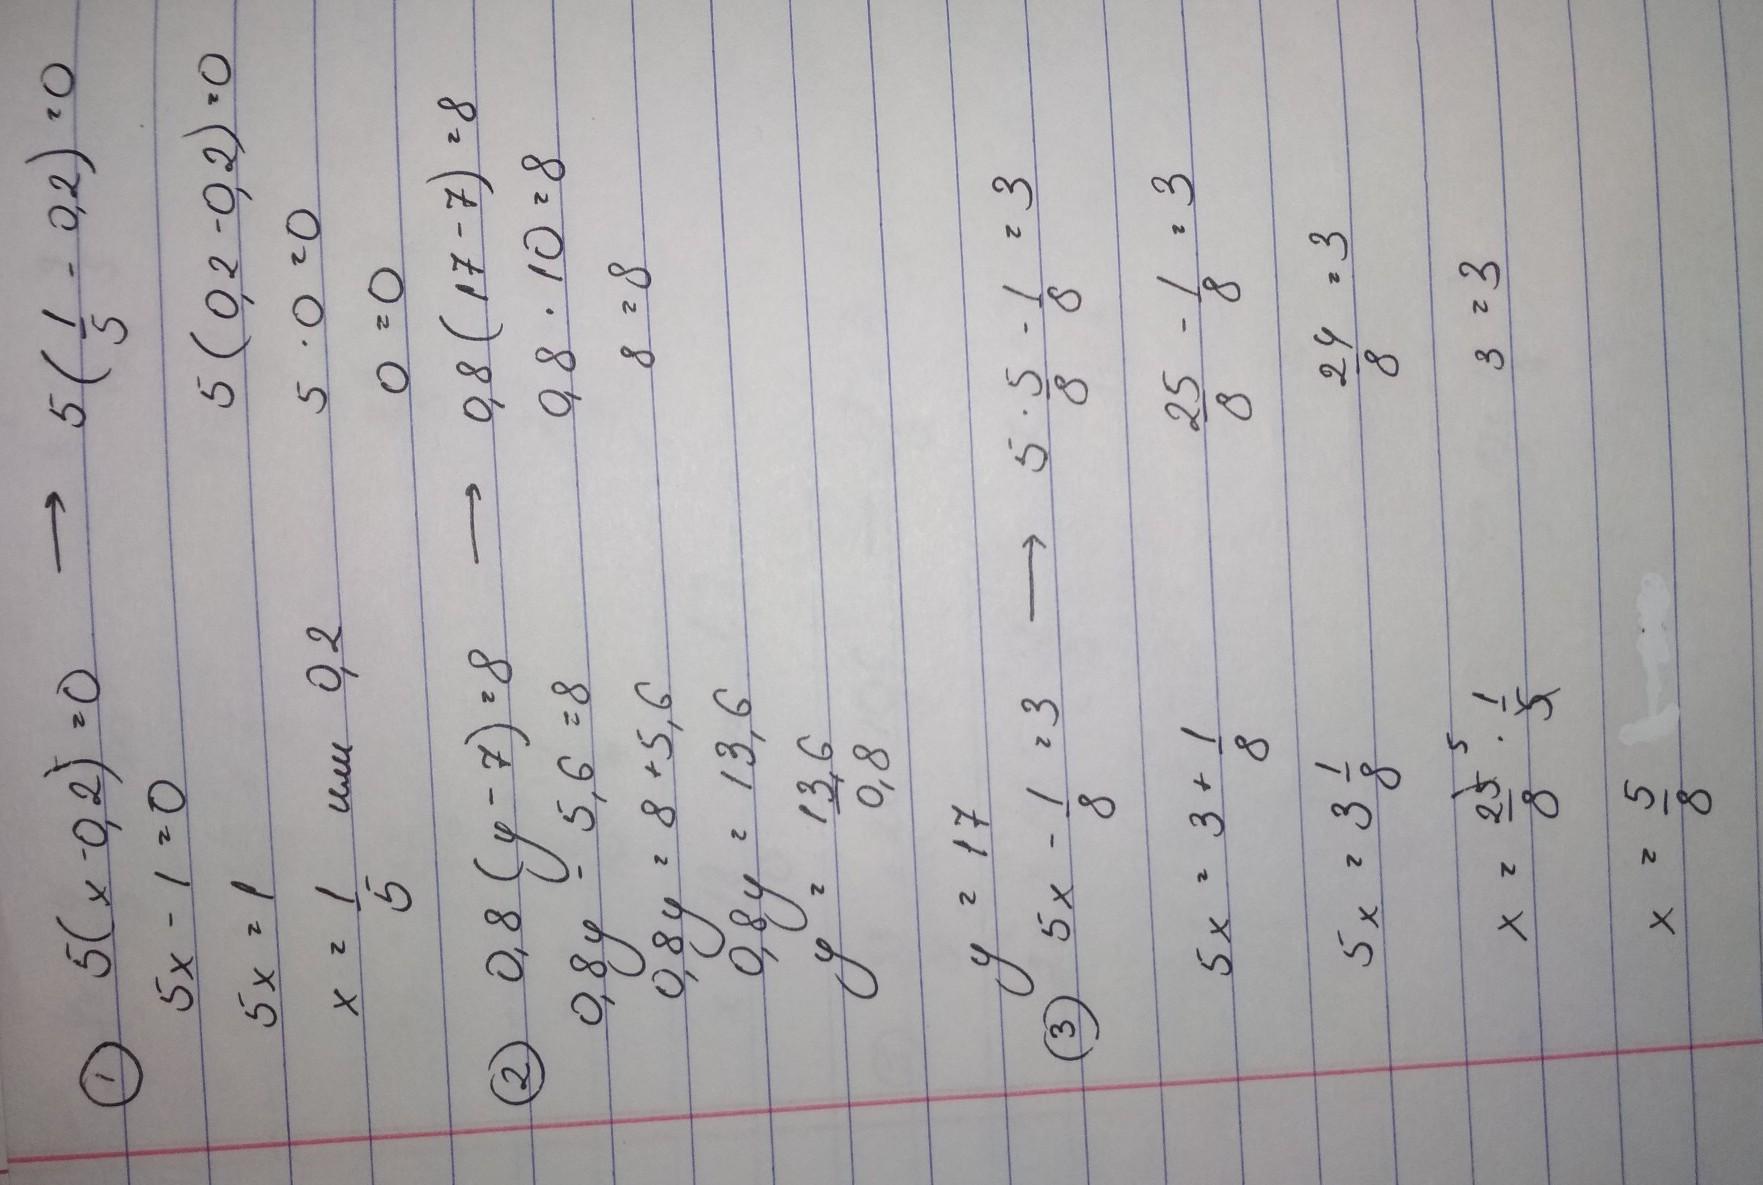 ① 5(x-0,2)=0 → 5(1/5 - 0,2)=0
5x-1=0 5(0,2-0,2)=0
5x=1 5·0=0
x=1/5 или 0,2 0=0
② 0,8(y-7)=8 → 0,8(17-7)=8
0,8y-5,6=8 0,8·10=8
0,8y=8+5,6 8=8
0,8y=13,6
y=13,6/0,8
y=17
③ 5x-1/8=3 → 5·5/8-1/8=3
5x=3+1/8 25/8-1/8=3
5x=3 1/8 24/8=3
x=25/8 5·1/5 3=3
x=5/8